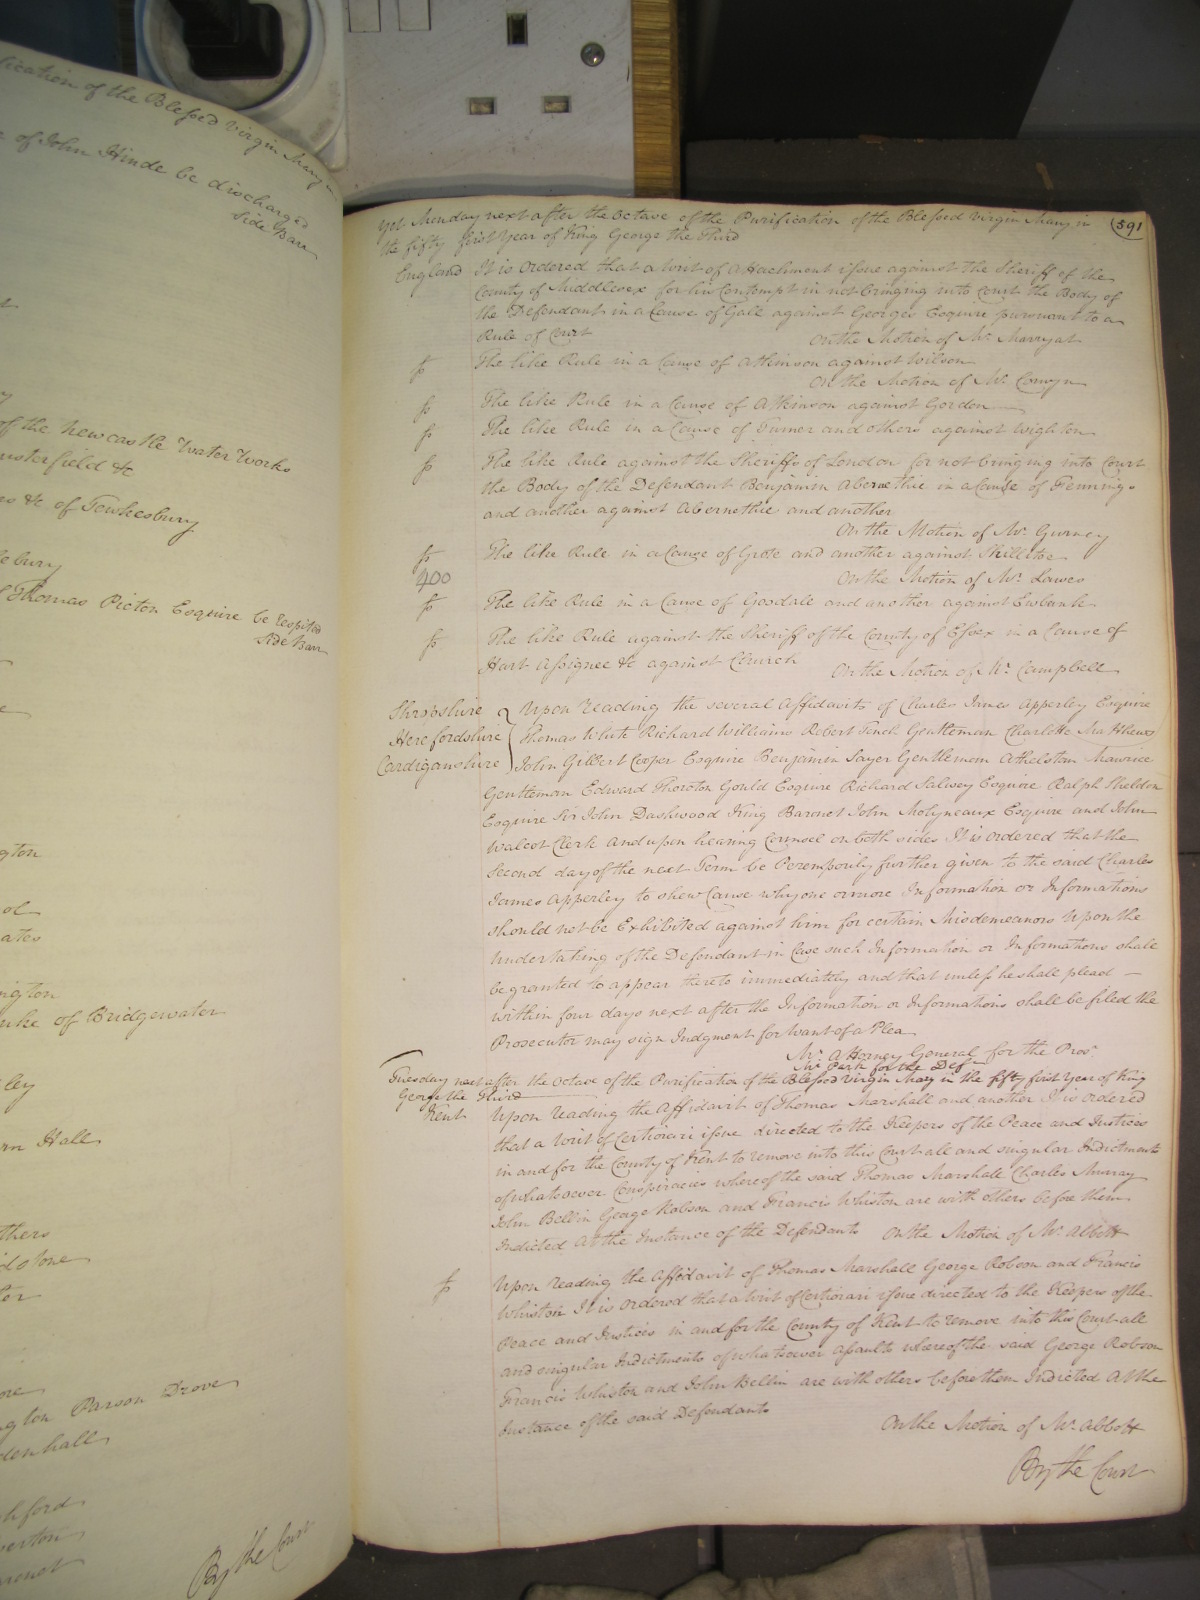 lication of the Blessed Virgin Mary in
of John Hinde be discharged
Side Barr
of the Newcastle Water Works
usterfield &c
es &c of Tewkesbury
Thomas Picton Esquire be respited
Side Barr
gton
ol
ates
ington
uke of Bridgewater
ley
rn Hall
thers
dstone
ter
ore
gton Parson Drove
denhall
hford
erton
By the Court
591
Yet Monday next after the Octave of the Purification of the Blessed Virgin Mary in
the fifty first Year of King George the Third
England It is Ordered that a Writ of Attachment issue against the Sheriff of the
County of Middlesex for his Contempt in not bringing into Court the Body of
the Defendant in a Cause of Gale against Georges Esquire pursuant to a
Rule of Court On the Motion of Mr. Marryat
fs The like Rule in a Cause of Atkinson against Wilson
On the Motion of Mr. Comyn
fs The like Rule in a Cause of Atkinson against Gordon
fs The like Rule in a Cause of Turner and others against Wighton
fs The like Rule against the Sheriffs of London for not bringing into Court
the Body of the Defendant Benjamin Abernethie in a Cause of Fennings
and another against Abernethie and another
On the Motion of Mr. Gurney
fs The like Rule in a Cause of Grote and another against Skillitoe
400 On the Motion of Mr. Lawes
fs The like Rule in a Cause of Goodale and another against Ewbank
fs The like Rule against the Sheriff of the County of Essex in a Cause of
Hart Assignee &c against Church On the Motion of Mr. Campbell
Shropshire Upon reading the several Affidavits of Charles James Apperley Esquire
Herefordshire Thomas White Richard Williams Robert Fenck Gentleman Charlotte Matthews
Cardiganshire John Gilbert Cooper Esquire Benjamin Sayer Gentleman Athelstan Maurice
Gentleman Edward Thoroton Gould Esquire Richard Salwey Esquire Ralph Sheldon
Esquire Sir John Dashwood King Baronet John Molyneaux Esquire and John
Walcot Clerk And upon hearing Counsel on both sides It is ordered that the
Second day of the next Term be Peremporily further given to the said Charles
James Apperley to shew Cause why one or more Information or Informations
should not be Exhibited against him for certain Misdemeanors Upon the
Undertaking of the Defendant in Case such Information or Informations shall
be granted to appear thereto immediately and that unless he shall plead
within four days next after the Information or Informations shall be filed the
Prosecutor may sign Judgment for want of a Plea
Mr. Attorney General for the Pros.
Mr. Park for the Def
Tuesday next after the Octave of the Purification of the Blessed Virgin Mary in the fifty first Year of King
George the Third
Kent Upon reading the Affidavit of Thomas Marshall and another It is ordered
that a Writ of Certiorari issue directed to the Keepers of the Peace and Justices
in and for the County of Kent to remove into this Court all and singular Indictments
of whatsoever Conspiracies whereof the said Thomas Marshall Charles Murray
John Bellin George Robson and Francis Whiston are with others before them
Indicted At the Instance of the Defendants On the Motion of Mr. Abbott
fs Upon reading the Affidavit of Thomas Marshall George Robson and Francis
Whiston It is ordered that a Writ of Certiorari issue directed to the Keepers of the
Peace and Justices in and for the County of Kent to remove into this Court all
and singular Indictments of whatsoever assaults whereof the said George Robson
Francis Whiston and John Bellin are with others before them Indicted At the
Instance of the said Defendants
On the Motion of Mr. Abbott
By the Court